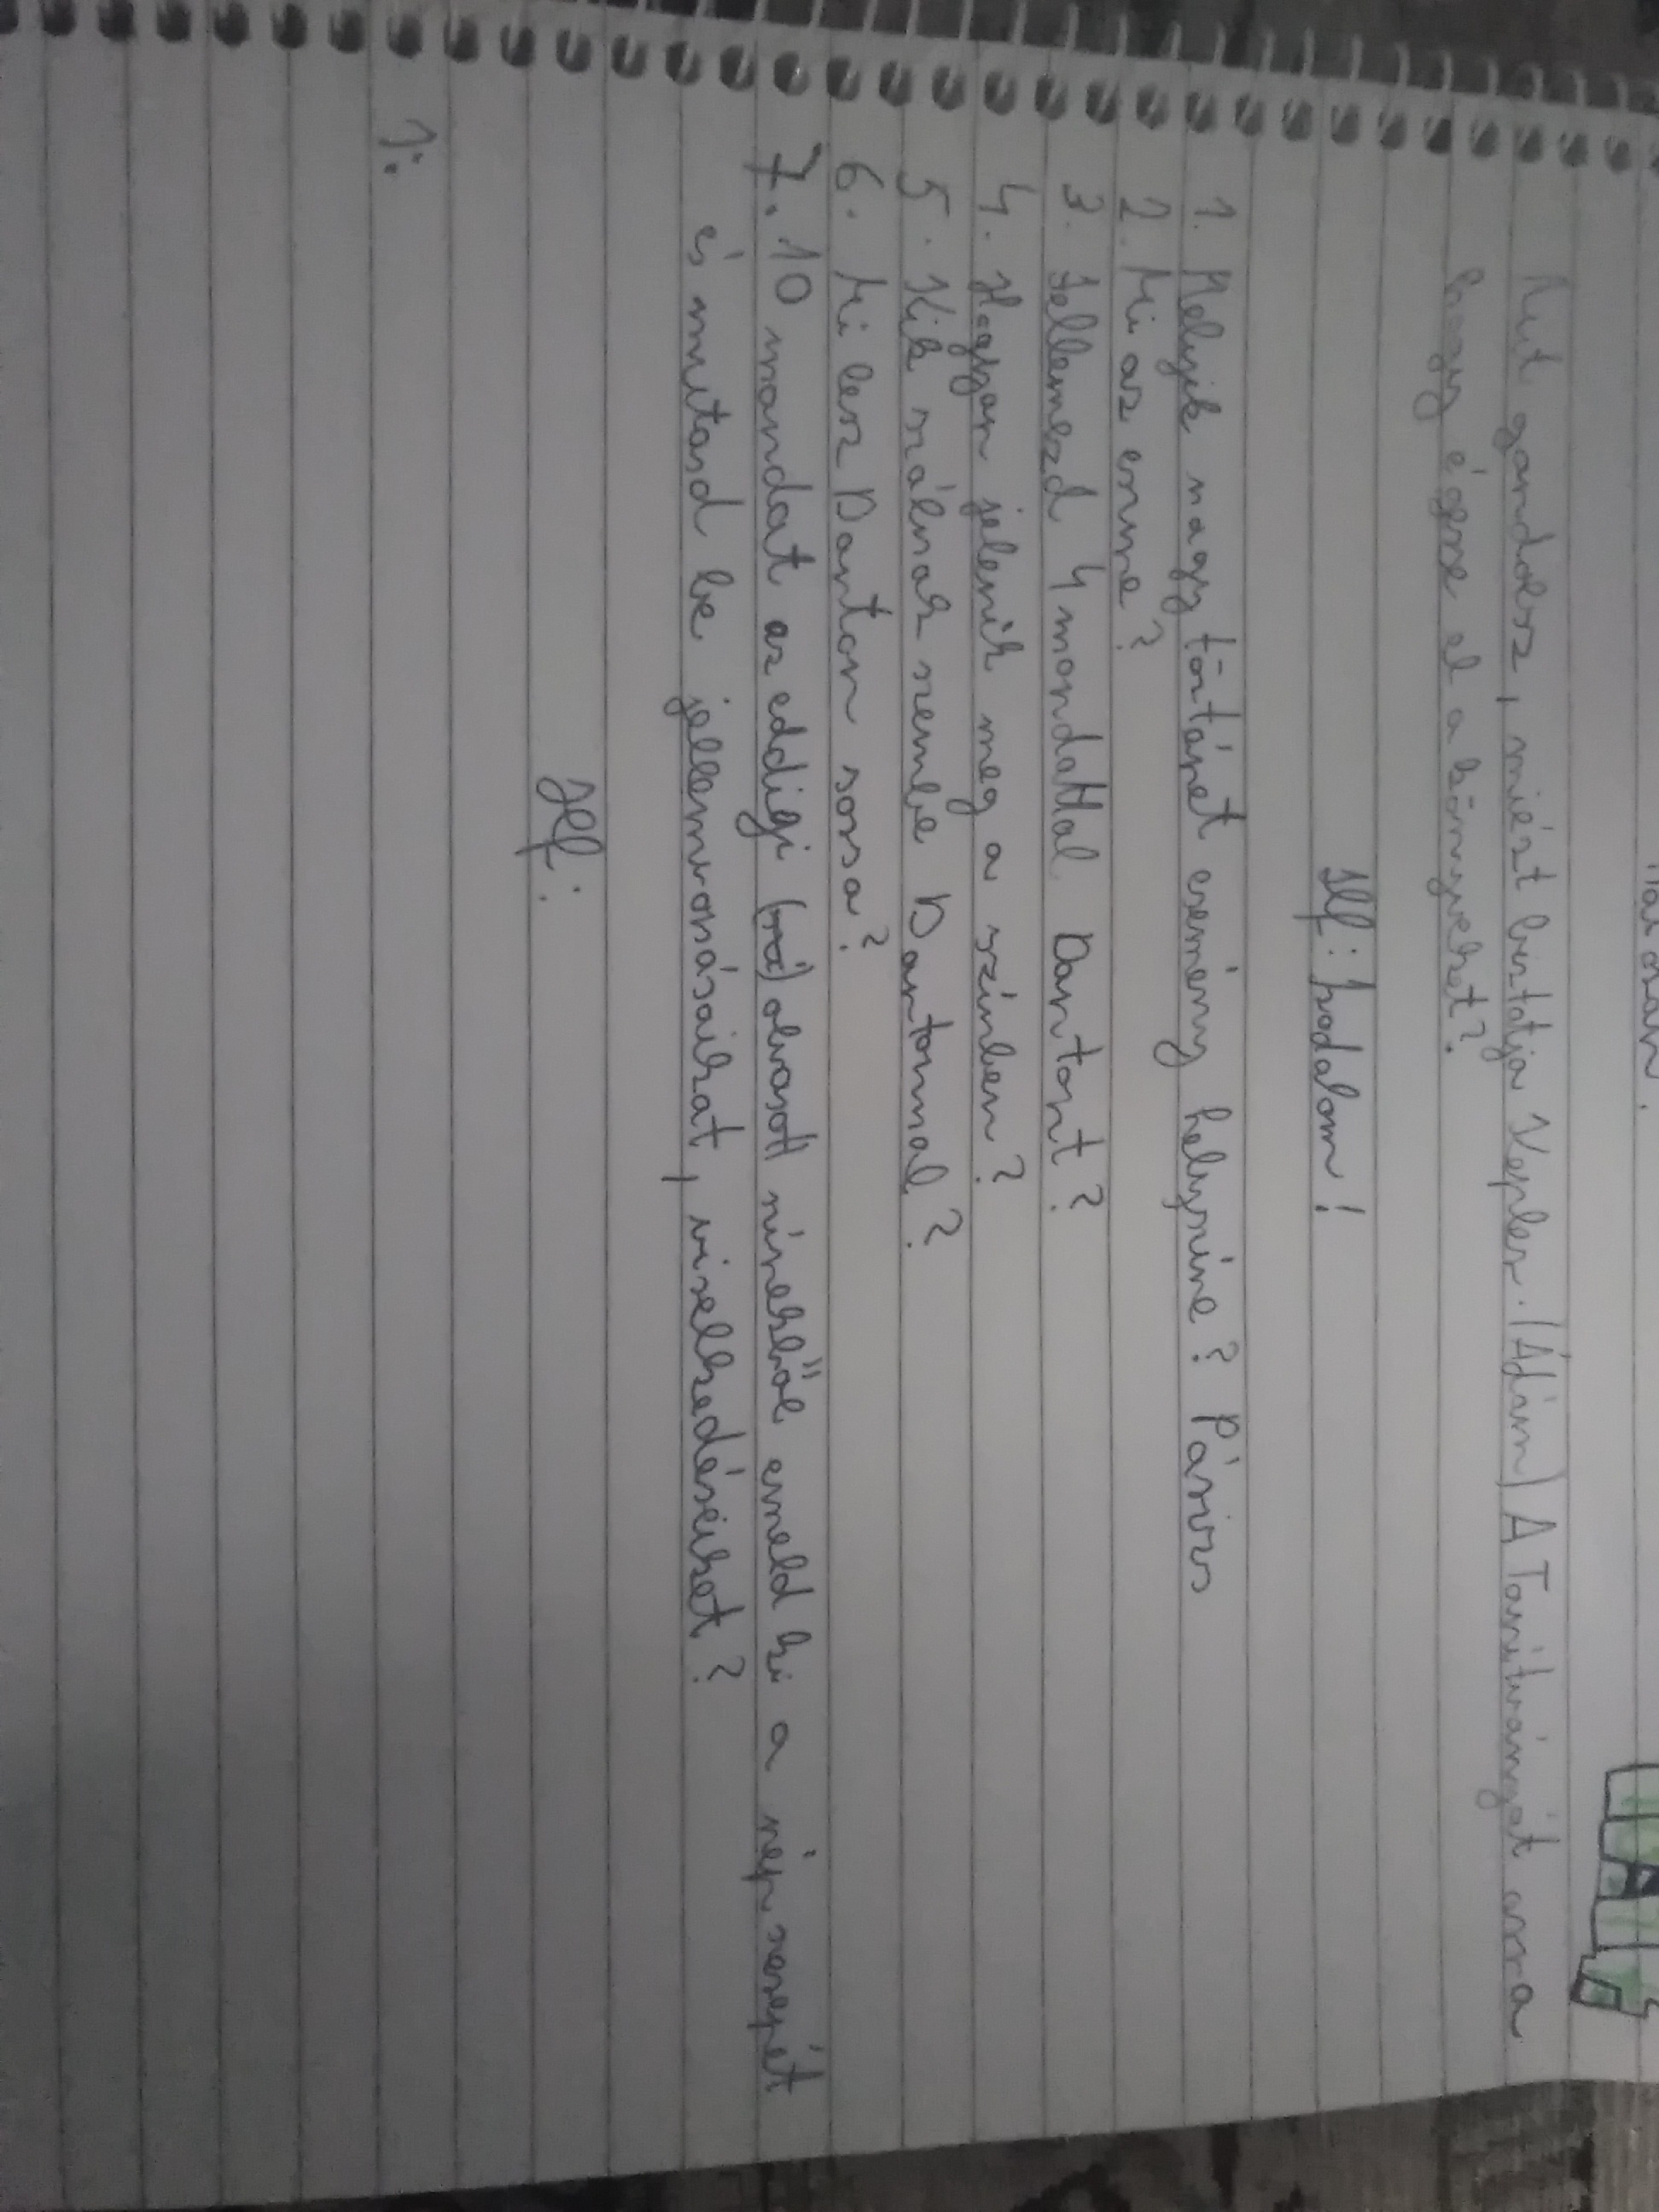 Mit gondolsz, miért biztatja Kepler. (Ádám) A Tanítványát arra
hogy égesse el a könyveket?
Hf: Irodalom!
1. Melyik nagy történet esemény helyszíne? Párizs
2. Mi az eszme?
3. Jellemezd 4 mondattal Dantont?
4. Hogyan jelenik meg a színben?
5. Kik szálnak szembe Dantonnal?
6. Mi lesz Danton sorsa?
7. 10 mondat az eddigi olvasott színekből emeld ki a nép szerepét
és mutasd be jellemvonásaikat, viselkedéseiket?
Hf:
1: